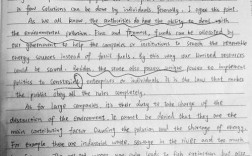 to find solutions by individuals, formally, I agree the point.
As we all know, the authorities do have the ability to deal with
the environmental pollution. First and foremost, funds can be allocated by
our government to help the companies or institutions to search the renewable
energy sources instead of fossil fuels. By this way, our limited resources
could be saved. the state also can implement
policies to constrain enterprises or individuals. It is the law that makes
the public obey all the rules completely.
As for large companies, it's their duty to take charge of the
destruction of the environment. It cannot be denied that they are the
main contributing factor causing the pollution and the shortage of energy.
For example, there are industrial waste, sewage in the river and too much